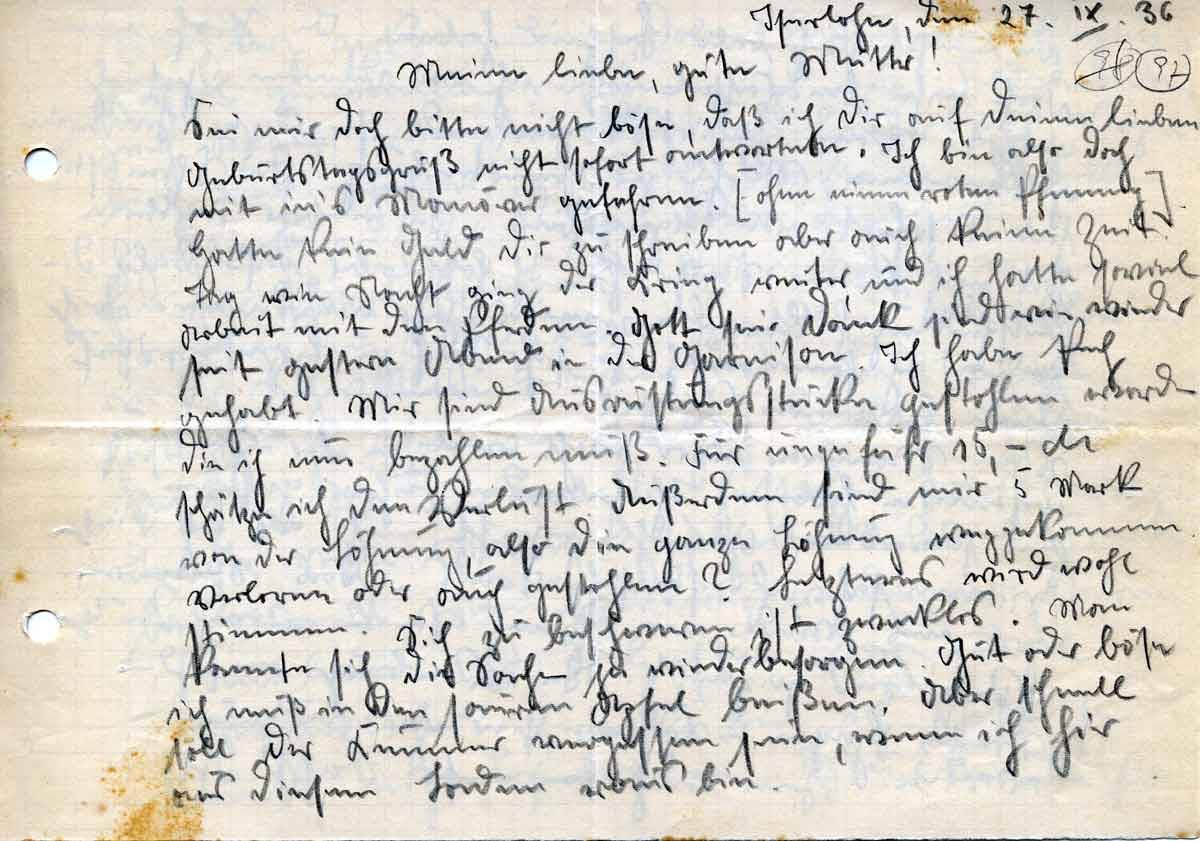 Iserlohn, den 27. IX. 36
96 97
Meine liebe, gute Mutter!
Sei mir doch bitte nicht böse, daß ich Dir auf Deinen lieben
Geburtstagsgruß nicht sofort antwortete. Ich bin also doch
mit in's Manöver gefahren. [ohne einen roten Pfennig].
Hatte kein Geld Dir zu schreiben aber auch keine Zeit.
Tag wie Nacht ging der Krieg weiter und ich hatte soviel
Arbeit mit den Pferden. Gott sei Dank sind wir wieder
seit gestern Abend in der Garnison. Ich habe Pech
gehabt Mir sind Ausrüstungsstücke gestohlen worden
die ich nun bezahlen muß. Für ungefähr 15,- M
schätze ich den Verlust. Außerdem sind mir 5 Mark
von der Löhnung, also die ganze Löhnung weggekommen
verloren oder auch gestohlen? Letzteres wird wohl
stimmen. Sich zu beschweren ist zwecklos. Man
konnte sich die Sachen ja wiederbesorgen. Gut oder böse
ich muß in den sauren Apfel beißen. Aber schnell
soll der Kummer vergessen sein, wenn ich hier
aus diesem Laden raus bin.